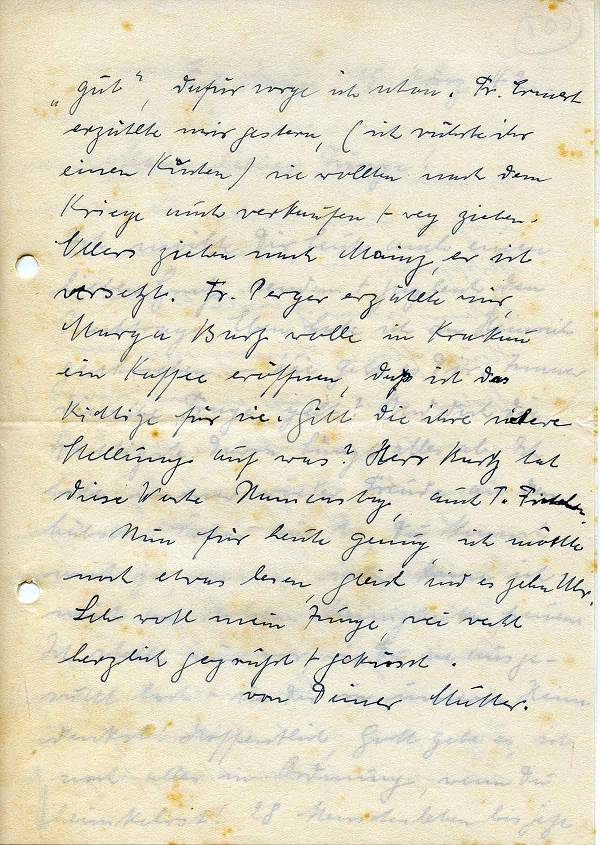 „gut“, dafür sorge ich schon. Fr. Ernert
erzählte mir gestern, (ich rührte ihr
einen Kuchen) sie wollten nach dem
Kriege auch verkaufen + weg ziehen.
Ullers ziehen nach Mainz, er ist
versetzt. Fr. Perger erzählte mir,
Marga Burg wolle in Krakau
ein Kaffee eröffnen, daß ist das
Richtige für sie. Gibt die ihre sichere
Stellung auf was? Herr Kurtz hat
diese Woche Namenstag, auch T.
Nun für heute genug, ich möchte
noch etwas lesen, gleich sind es zehn Uhr.
Leb wohl mein Junge, sei recht
herzlich gegrüßt + geküsst.
von Deiner Mutter.